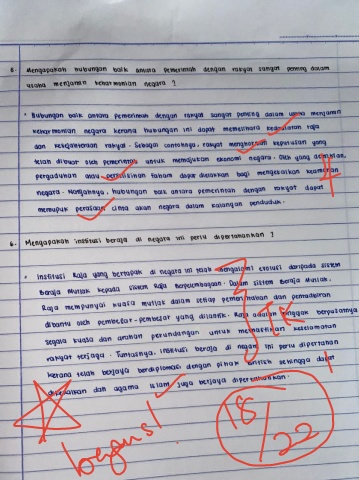 5. Mengapakah hubungan baik antara pemerintah dengan rakyat sangat penting dalam
usaha menjamin keharmonian negara ?
• Hubungan baik antara pemerintah dengan rakyat sangat penting dalam usaha menjamin
keharmonian negara kerana hubungan ini dapat memelihara kedaulatan raja
dan kesejahteraan rakyat. Sebagai contohnya, rakyat menghormati keputusan yang
telah dibuat oleh pemerintah untuk memajukan ekonomi negara. Oleh yang demikian,
pergaduhan atau perselisihan faham dapat dielakkan bagi mengekalkan keamanan
negara. Konklusinya, hubungan baik antara pemerintah dengan rakyat dapat
memupuk perasaan cinta akan negara dalam kalangan penduduk.
4
6. Mengapakah institusi beraja di negara ini perlu dipertahankan ?
• Institusi Raja yang bertapak di negara ini telah mengalami evolusi daripada sistem
Beraja Mutlak kepada sistem Raja Berperlembagaan. Dalam sistem Beraja Mutlak,
Raja mempunyai kuasa mutlak dalam setiap pemerintahan dan pentadbiran
dibantu oleh pembesar-pembesar yang dilantik. Raja adalah tonggak berpusatnya
segala kuasa dan arahan perundangan untuk memastikan keselamatan
rakyat terjaga. Tuntasnya, institusi beraja di negara ini perlu dipertahan
kerana telah berjaya berdiplomasi dengan pihak British sehingga dapat
dan agama Islam juga berjaya dipertahankan.
bagus!
18/22